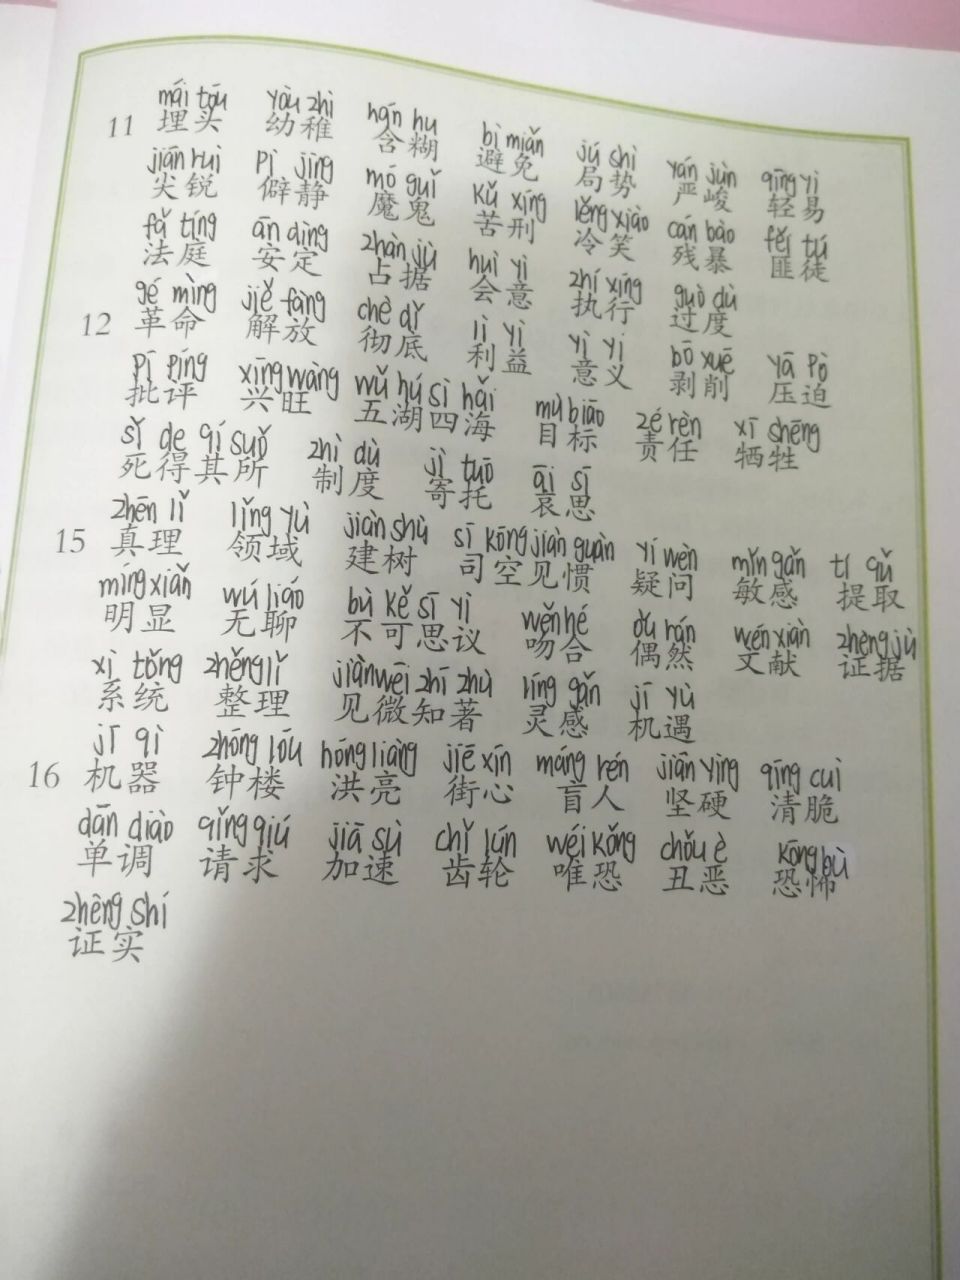 mái tóu yòu zhì hán hu bì miǎn jú shì yán jùn qīng yì
11 埋头 幼稚 含糊 避免 局势 严峻 轻易
jiān ruì pì jìng mó guǐ kǔ xíng lěng xiào cán bào fěi tú
尖锐 僻静 魔鬼 苦刑 冷笑 残暴 匪徒
fǎ tíng ān dìng zhàn jù huì yì zhí xíng guò dù
法庭 安定 占据 会意 执行 过度
gé mìng jiě fàng chè dǐ lì yì yì yì bō xuē yā pò
12 革命 解放 彻底 利益 意义 剥削 压迫
pī píng xīng wàng wǔ hú sì hǎi mù biāo zé rèn xī shēng
批评 兴旺 五湖四海 目标 责任 牺牲
sǐ de qí suǒ zhì dù jì tuō āi sī
死得其所 制度 寄托 哀思
zhēn lǐ lǐng yù jiàn shù sī kōng jiàn guàn yí wèn mǐn gǎn tí qǔ
15 真理 领域 建树 司空见惯 疑问 敏感 提取
míng xiǎn wú liáo bù kě sī yì wěn hé ǒu rán wén xiàn zhèng jù
明显 无聊 不可思议 吻合 偶然 文献 证据
xì tǒng zhěng lǐ jiàn wēi zhī zhù líng gǎn jī yù
系统 整理 见微知著 灵感 机遇
jī qì zhōng lóu hóng liàng jiē xīn máng rén jiān yìng qīng cuì
16 机器 钟楼 洪亮 街心 盲人 坚硬 清脆
dān diào qǐng qiú jiā sù chǐ lún wéi kǒng chǒu è kǒng bù
单调 请求 加速 齿轮 唯恐 丑恶 恐怖
zhèng shí
证实